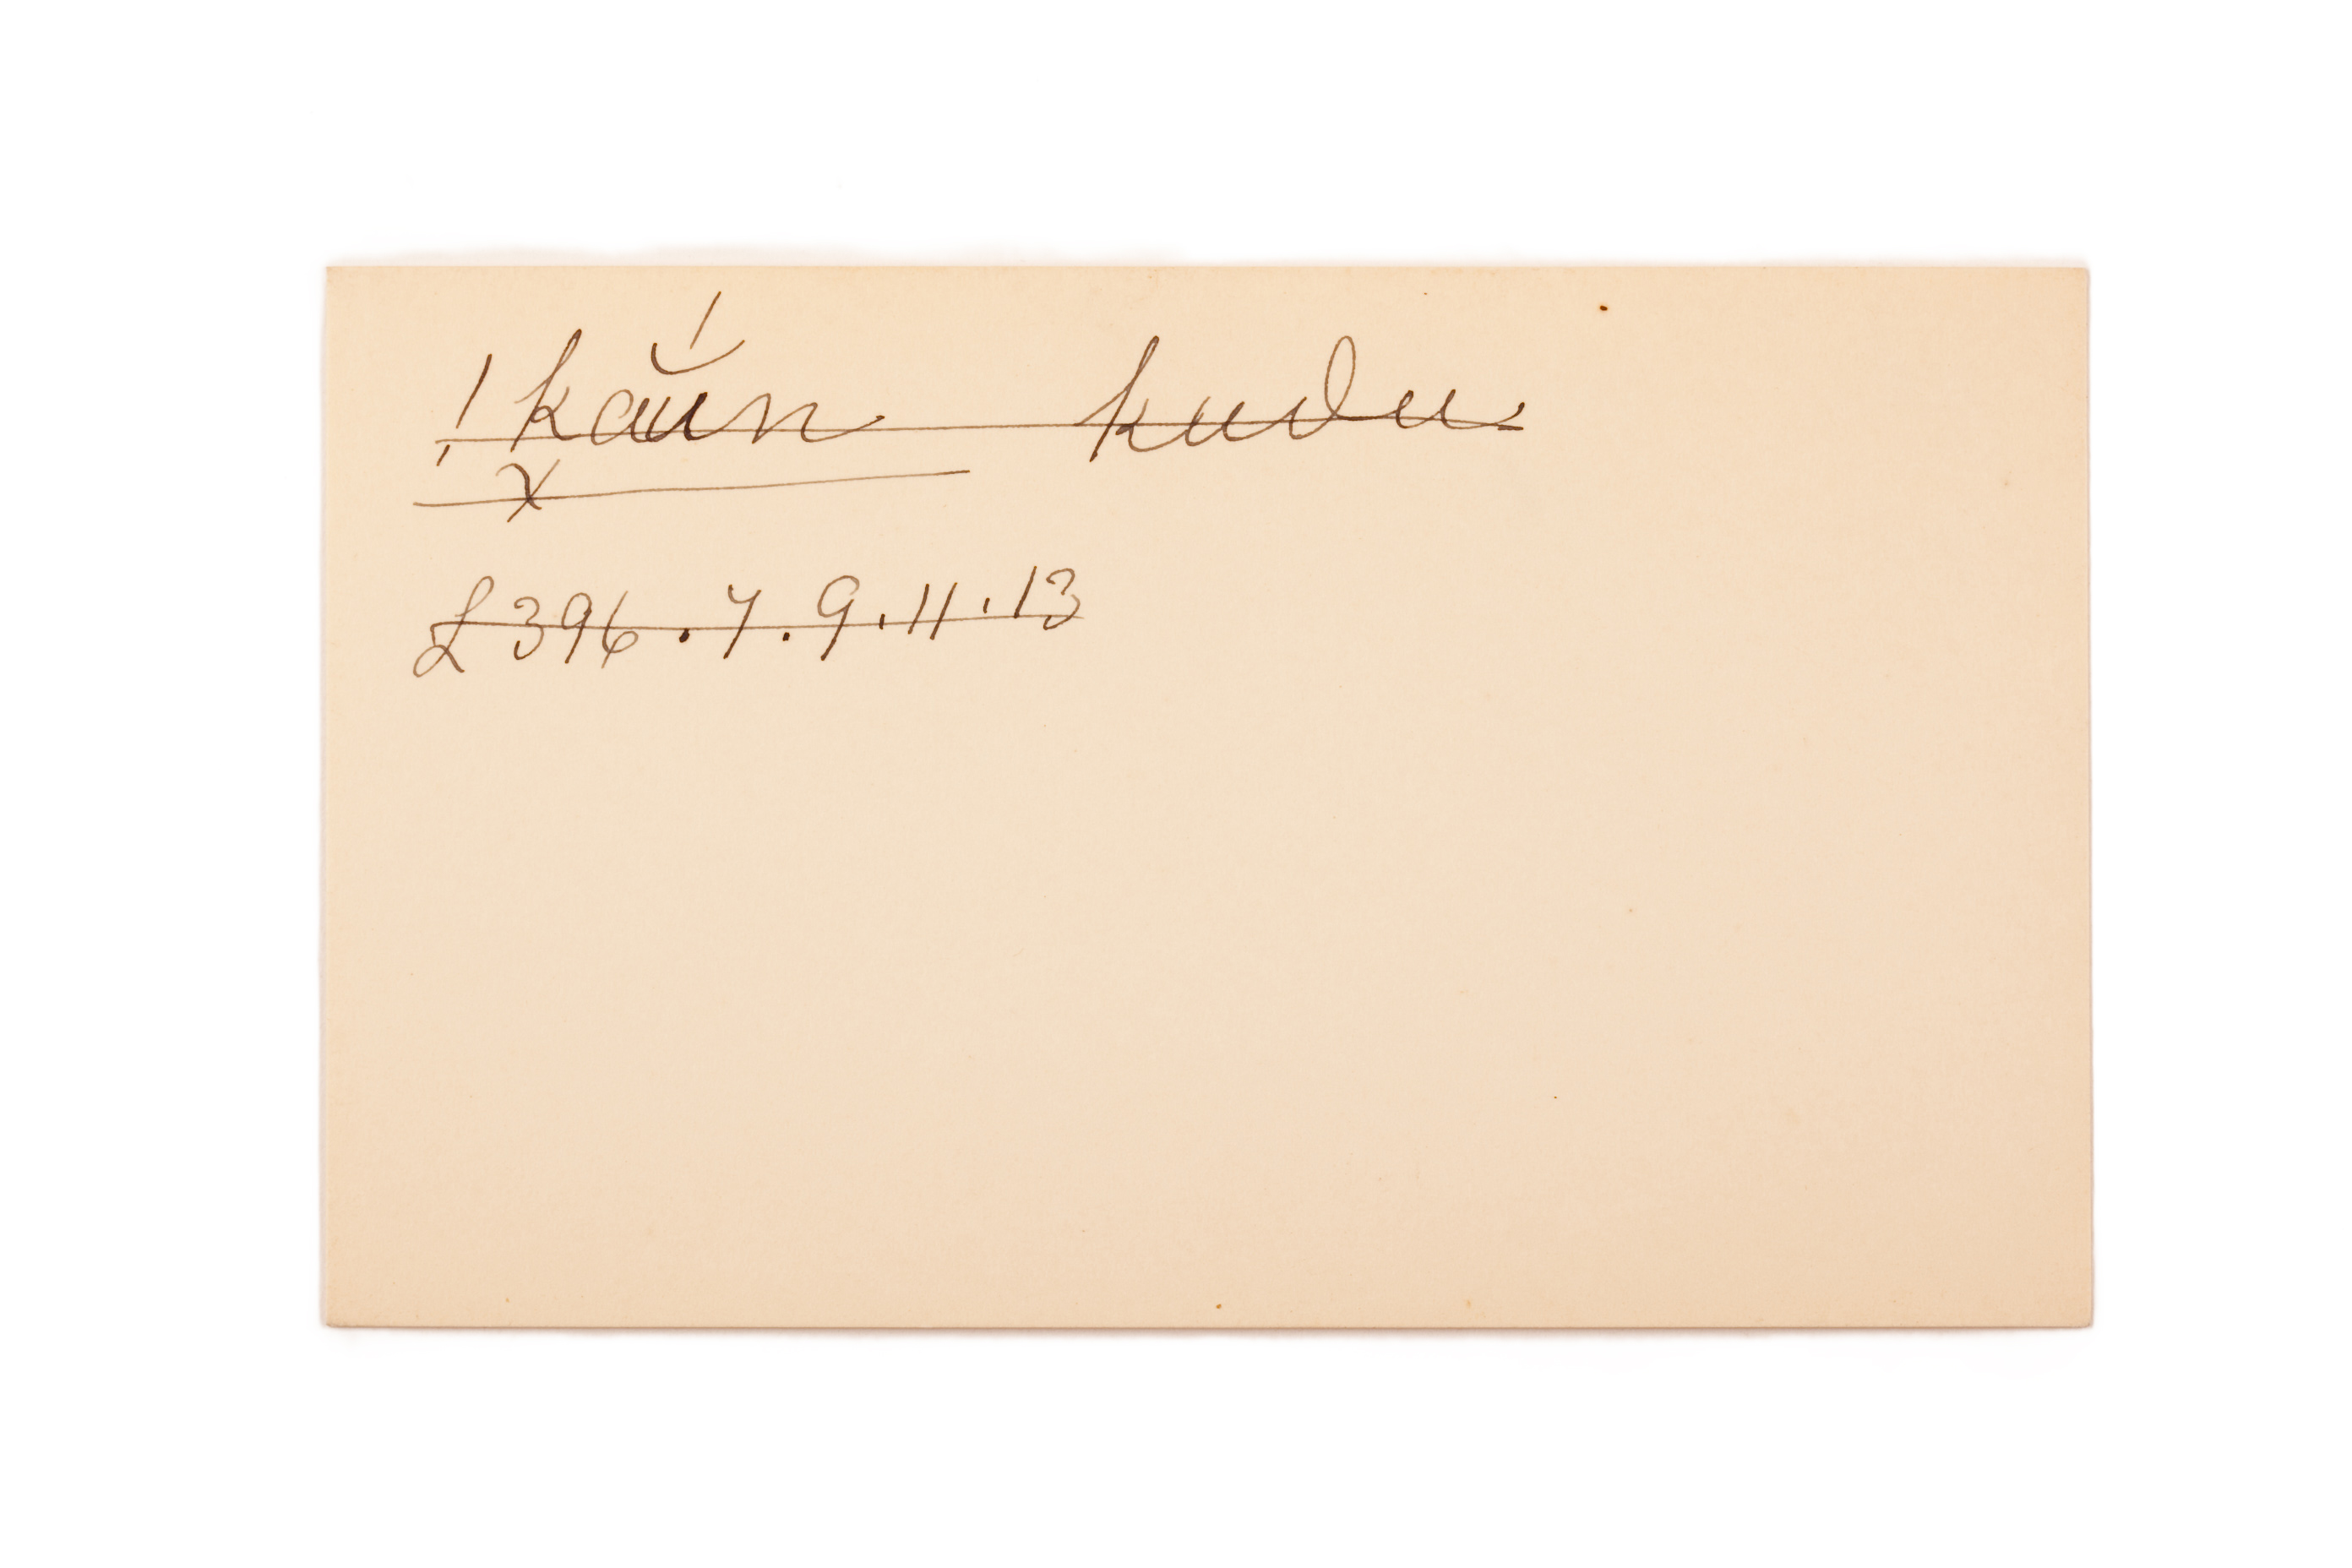 !kaŭ́n kudu.
x
£396.7.9.11.13